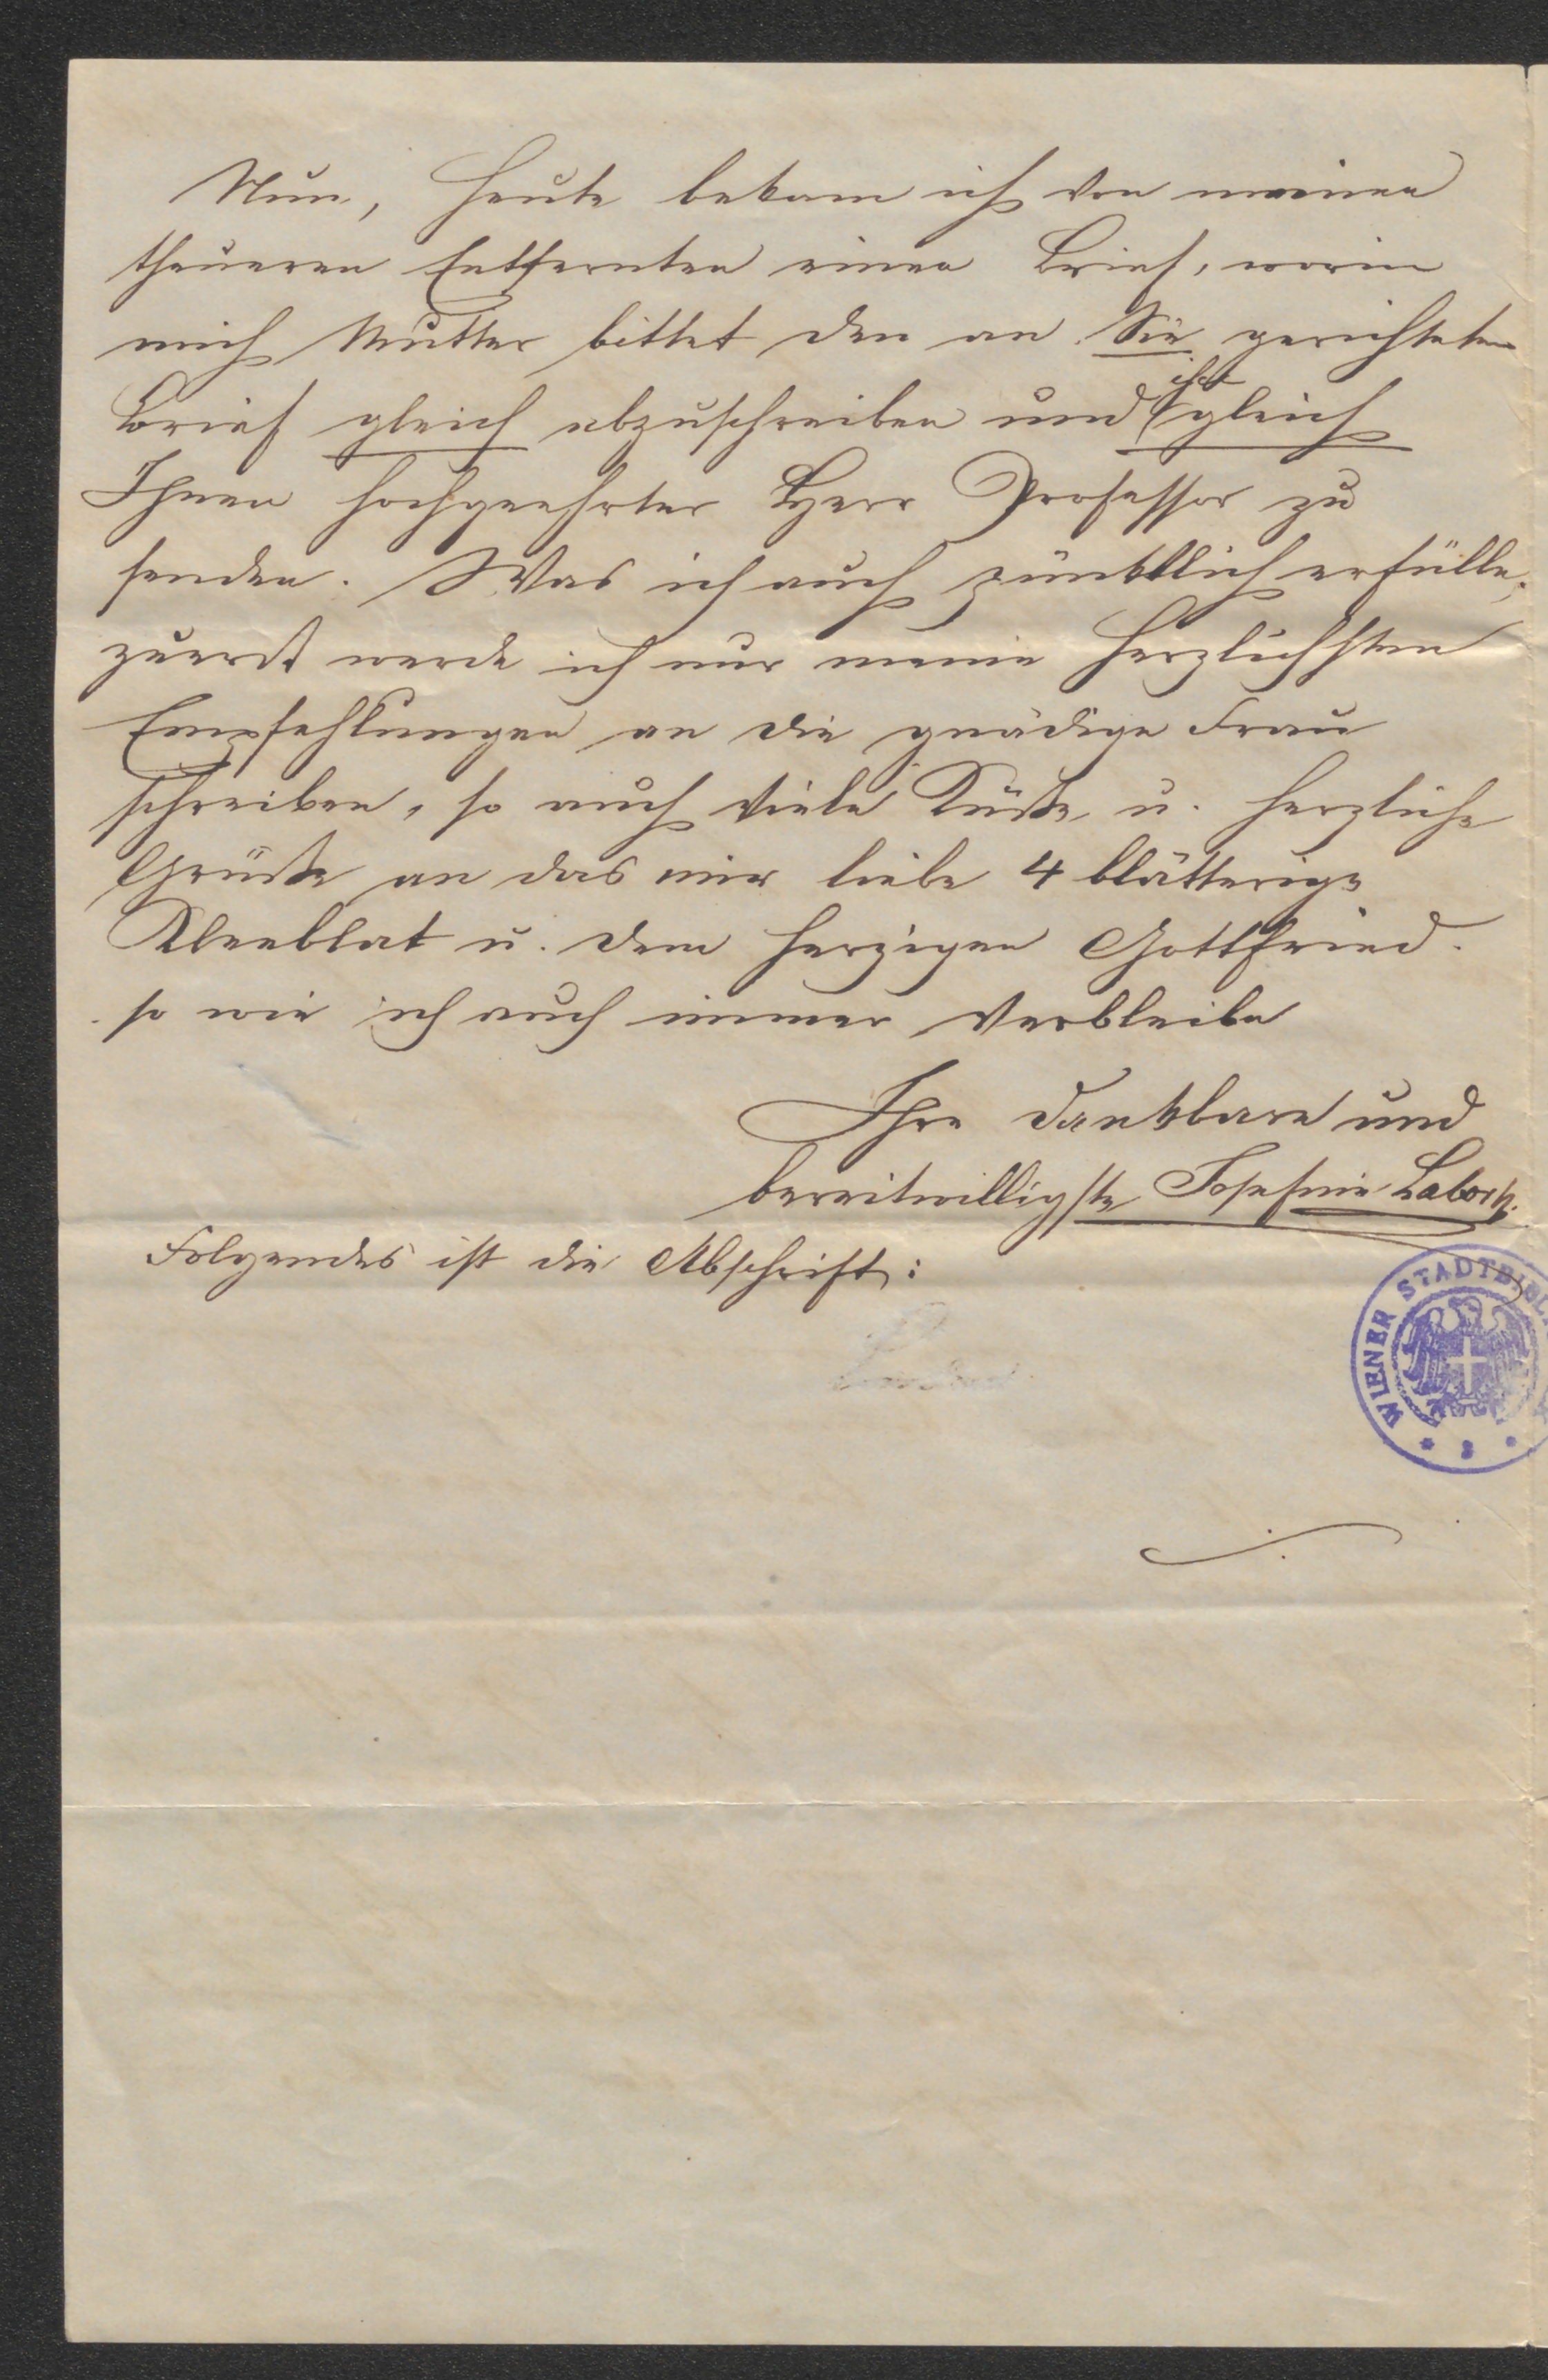 Nun, heute bekam ich von meinen
theueren Entfernten einen Brief, worin
mich Mutter bittet den an Sie gerichteten
Brief gleich abzuschreiben und ihn gleich
Ihnen hochgeehrter Herr Professor zu
senden. Was ich auch pünktlich erfülle,
zuerst werde ich nur meine herzlichsten
Empfehlungen an die gnädige Frau
schreiben, so auch viele Küsse u. herzliche
Grüsse an das mir liebe 4 blätterige
Kleeblat u. dem herzigen Gottfried.
so wie ich auch immer verbleibe
Ihre dankbare und
bereitwilligste Josefine Labor
Folgendes ist die Abschrift:
WIENER STADTBIBL